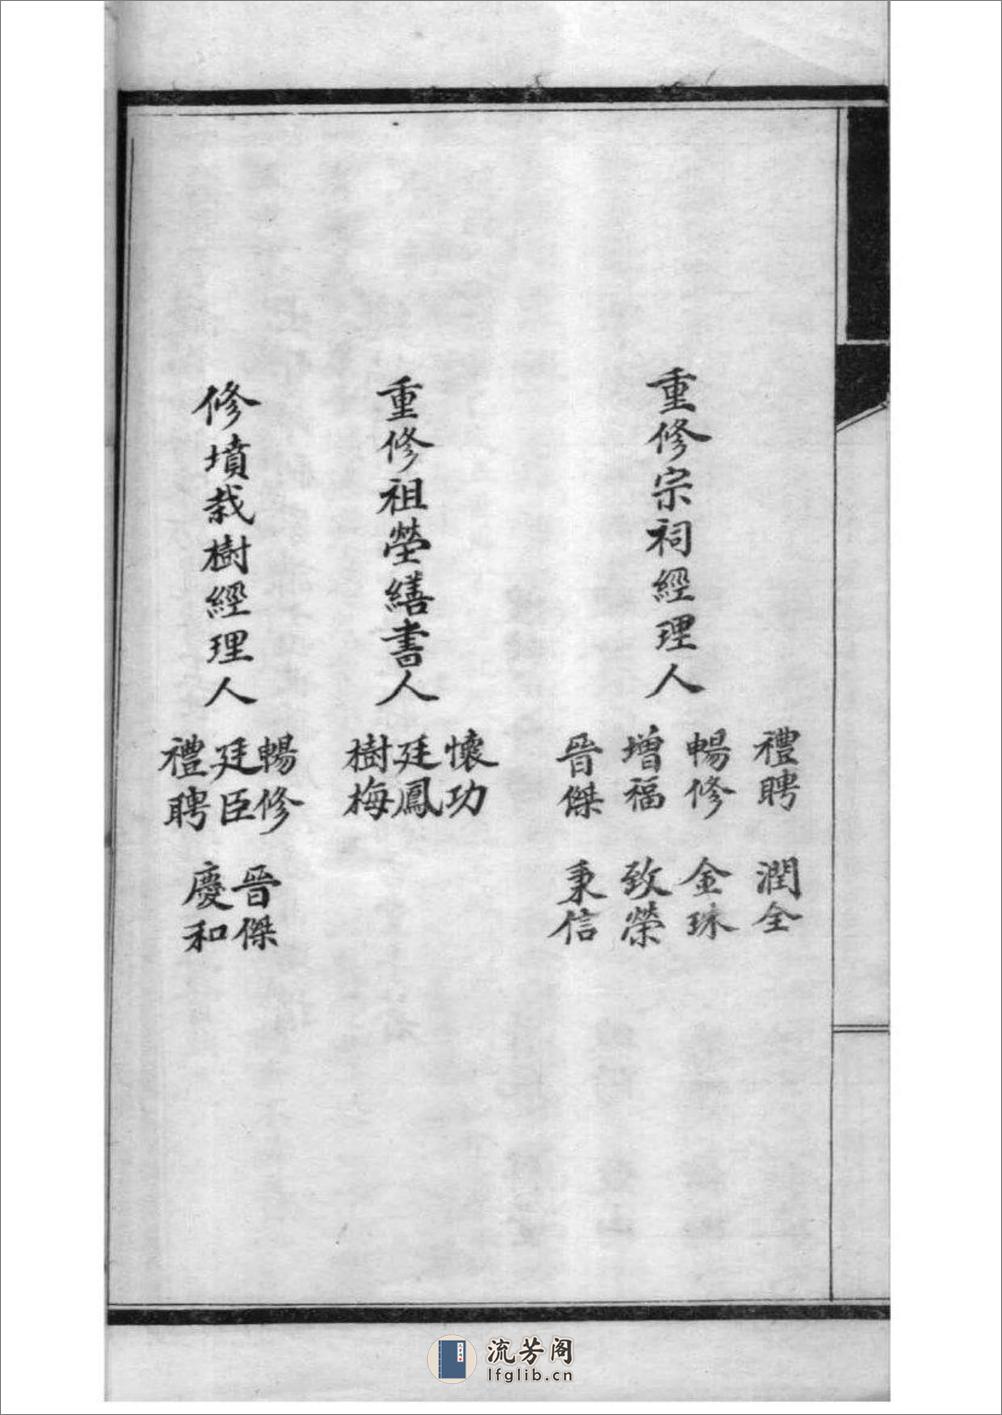 重修宗祠經理人
禮聘 潤全
暢修 金珠
增福 致榮
晉傑 秉信
重修祖塋繕書人
懷功
廷鳳
樹梅
修墳栽樹經理人
暢修 晉傑
廷臣 慶和
禮聘
流芳阁
lfglib.cn